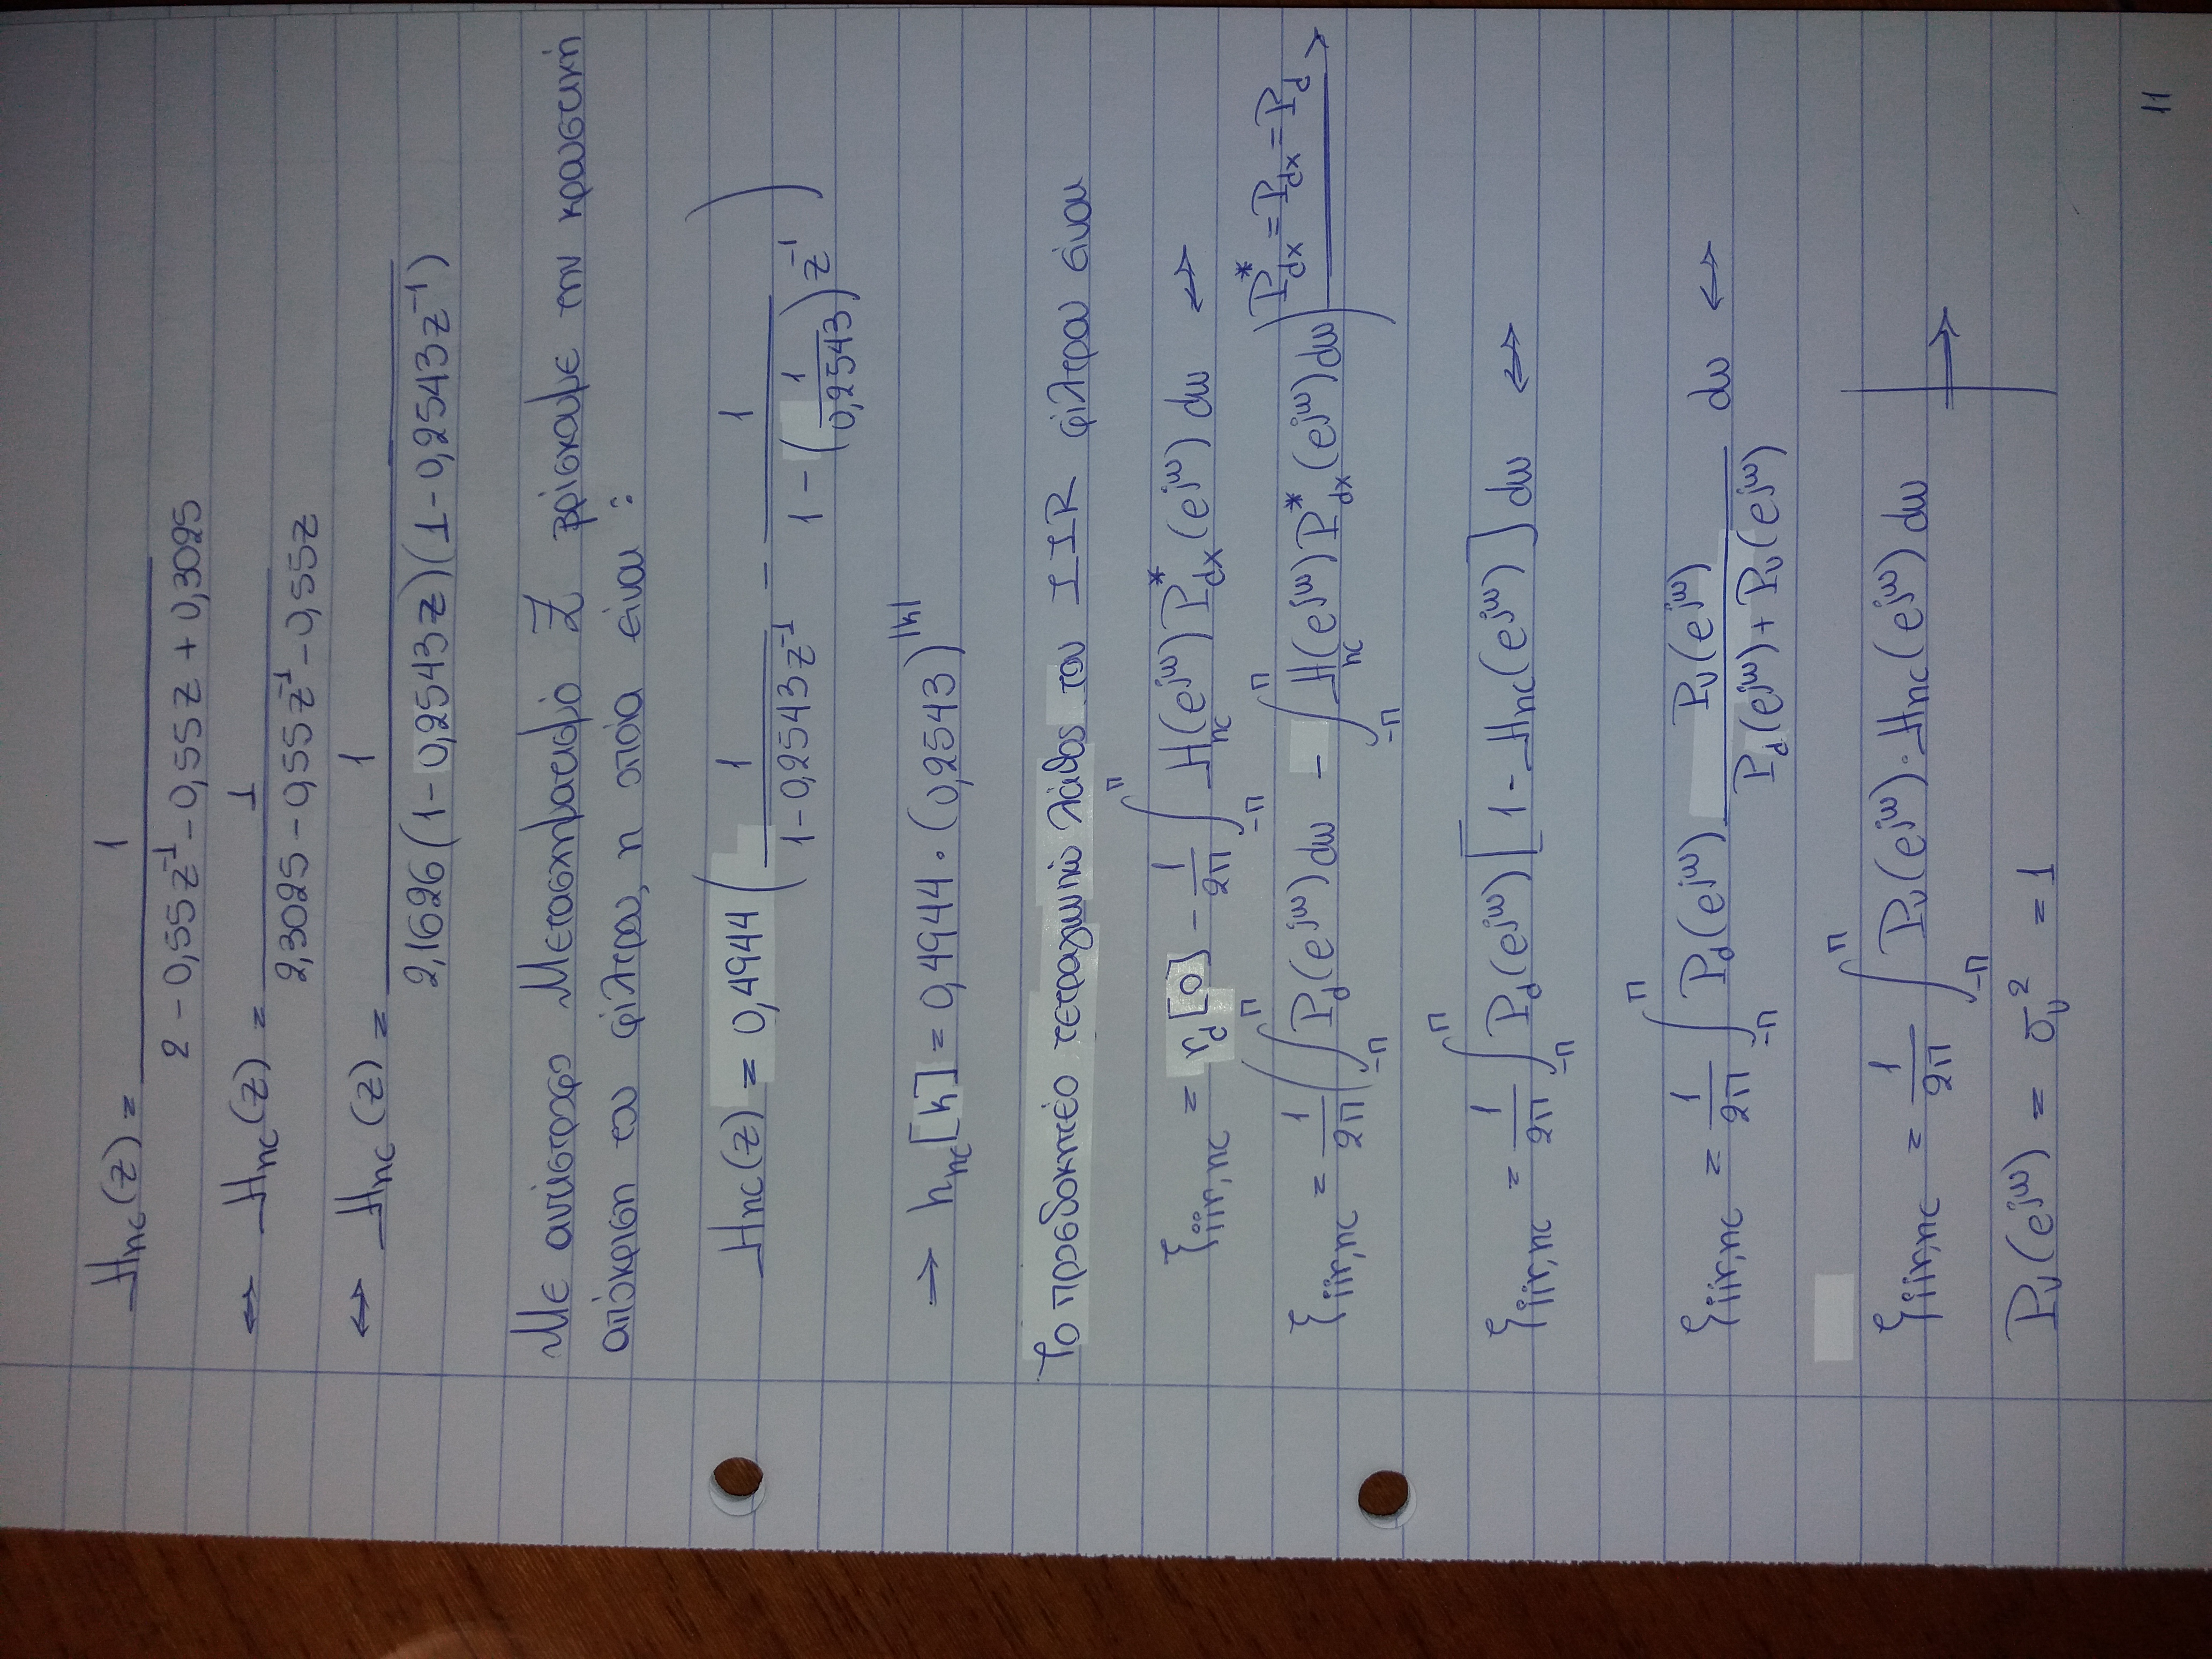 H_nc(z) = 1 / (2 - 0,55z^-1 - 0,55z + 0,3025)
⇔ H_nc(z) = 1 / (2,3025 - 0,55z^-1 - 0,55z)
⇔ H_nc(z) = 1 / (2,1626(1 - 0,2543z)(1 - 0,2543z^-1))
Με αντίστροφο Μετασχηματισμό Z βρίσκουμε την κρουστική
απόκριση του φίλτρου, η οποία είναι :
H_nc(z) = 0,4944 ( 1 / (1 - 0,2543z^-1) - 1 / (1 - (1/0,2543)z^-1) )
→ h_nc[k] = 0,4944 · (0,2543)^|k|
Το προσδοκητέο τετραγωνικό λάθος του IIR φίλτρου είναι
ξ_iir,nc = r_d[0] - 1/2π ∫_-π^π H_nc(e^jω) P*_dx(e^jω) dω ⇔
ξ_iir,nc = 1/2π ( ∫_-π^π P_d(e^jω) dω - ∫_-π^π H_nc(e^jω) P*_dx(e^jω) dω ) P*_dx = P_dx = P_d ⟹
ξ_iir,nc = 1/2π ∫_-π^π P_d(e^jω) [ 1 - H_nc(e^jω) ] dω ⇔
ξ_iir,nc = 1/2π ∫_-π^π P_d(e^jω) P_v(e^jω) / (P_d(e^jω) + P_v(e^jω)) dω ⇔
ξ_iir,nc = 1/2π ∫_-π^π P_v(e^jω) · H_nc(e^jω) dω | ⇒
P_v(e^jω) = σ_v^2 = 1
11